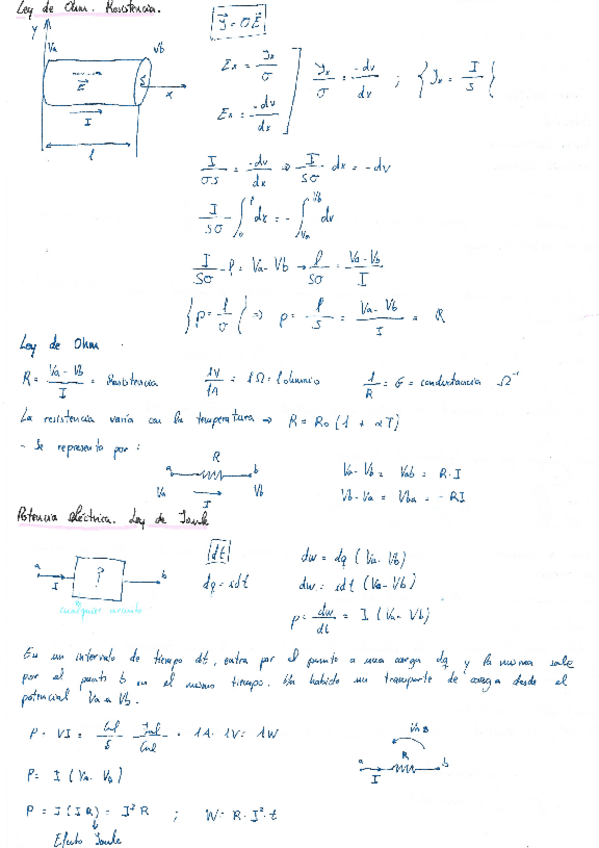 Ley de Ohm. Resistencia.
J⃗ = σE⃗
y
Va
Vb
E⃗
S
x
I
l
Ex = Jx/σ
Ex = -dv/dx
Jx/σ = -dv/dx ; { Jx = I/S {
I/σS = -dv/dx ⇒ I/Sσ dx = -dv
I/Sσ · ∫₀ˡ dx = - ∫Va^Vb dv
I/Sσ · l = Va - Vb → l/Sσ = (Va - Vb)/I
{ ρ = 1/σ { ⇒ ρ = l/S = (Va - Vb)/I = R
Ley de Ohm
R = (Va - Vb)/I = Resistencia
1V/1A = 1Ω = 1 ohmnio
1/R = G = conductancia Ω⁻¹
La resistencia varía con la temperatura ⇒ R = R₀ (1 + αT)
- Se representa por :
R
a
b
Va
I
Vb
Va - Vb = Vab = R·I
Vb - Va = Vba = - RI
Potencia eléctrica. Ley de Joule
a
I
?
b
cualquier
dt
dq = idt
dw = dq (Va - Vb)
dw = idt (Va - Vb)
p = dw/dt = I (Va - Vb)
En un intervalo de tiempo dt, entra por el punto a una carga dq y la misma sale
por el punto b en el mismo tiempo. Ha habido un transporte de carga desde el
potencial Va a Vb.
P = VI = Cul/s · Joul/Cul = 1A · 1V = 1W
R
a
I
b
P = I (Va - Vb)
P = I (I R) = I² R ; W = R · I² · t
Efecto Joule